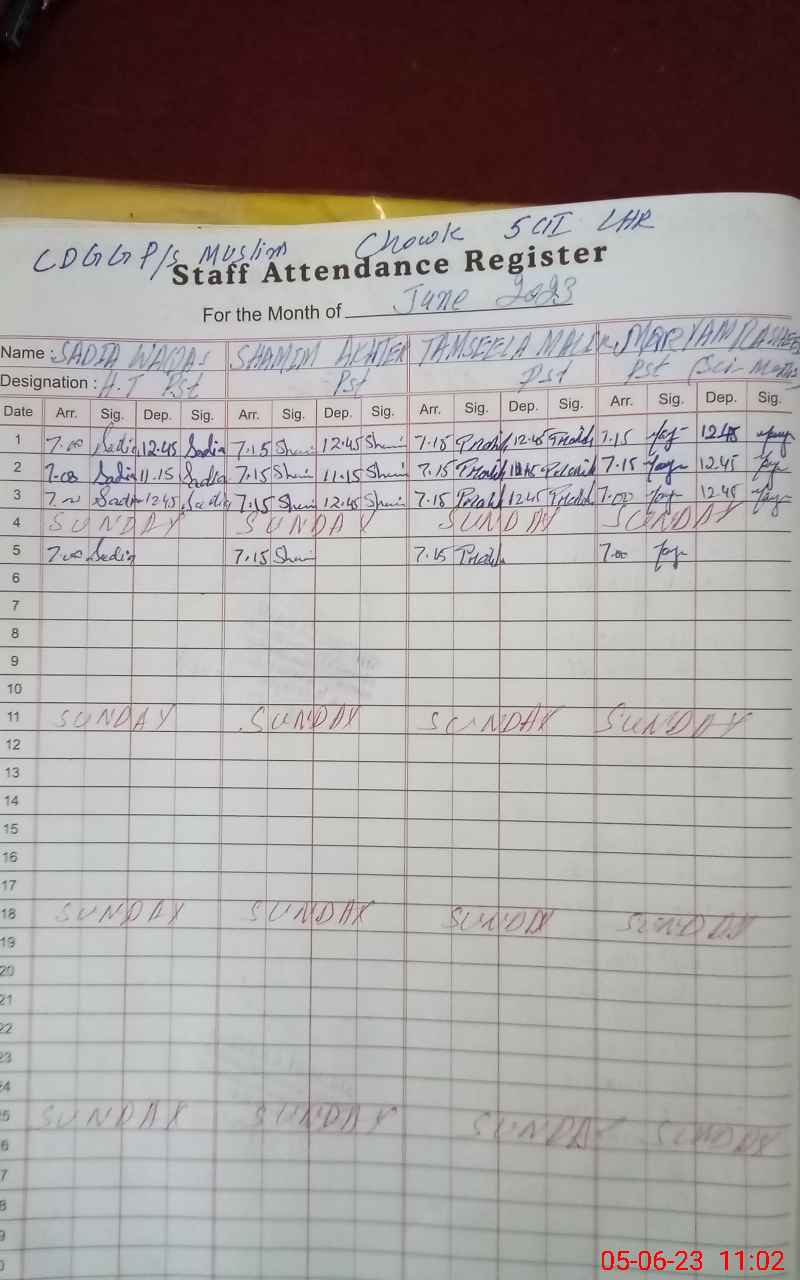 CDGG P/S Muslim Chowk
LHR
Staff Attendance Register
For the Month of June 2023
Name : SADIA WAQAS SHAMIM AKHTER TAMSEELA MALIK MARYAM RASHEED
Designation : H.T Pst Pst Pst Pst (Sci-Maths)
Date Arr. Sig. Dep. Sig. Arr. Sig. Dep. Sig. Arr. Sig. Dep. Sig. Arr. Sig. Dep. Sig.
1 7.00 Sadia 12.45 Sadia 7.15 12.45 7.15 12.45 7.15 12.45
2 7.00 Sadia 11.15 Sadia 7.15 11.15 7.15 7.15 12.45
3 7.00 Sadia 12.45 Sadia 7.15 12.45 7.15 12.45 7.00 12.45
4 SUNDAY SUNDAY SUNDAY SUNDAY
5 7.00 Sadia 7.15 7.15 7.00
6
7
8
9
10
11 SUNDAY SUNDAY SUNDAY SUNDAY
12
13
14
15
16
17
18 SUNDAY SUNDAY SUNDAY SUNDAY
19
20
21
22
23
4
5 SUNDAY SUNDAY SUNDAY SUNDAY
6
7
8
9
05-06-23 11:02